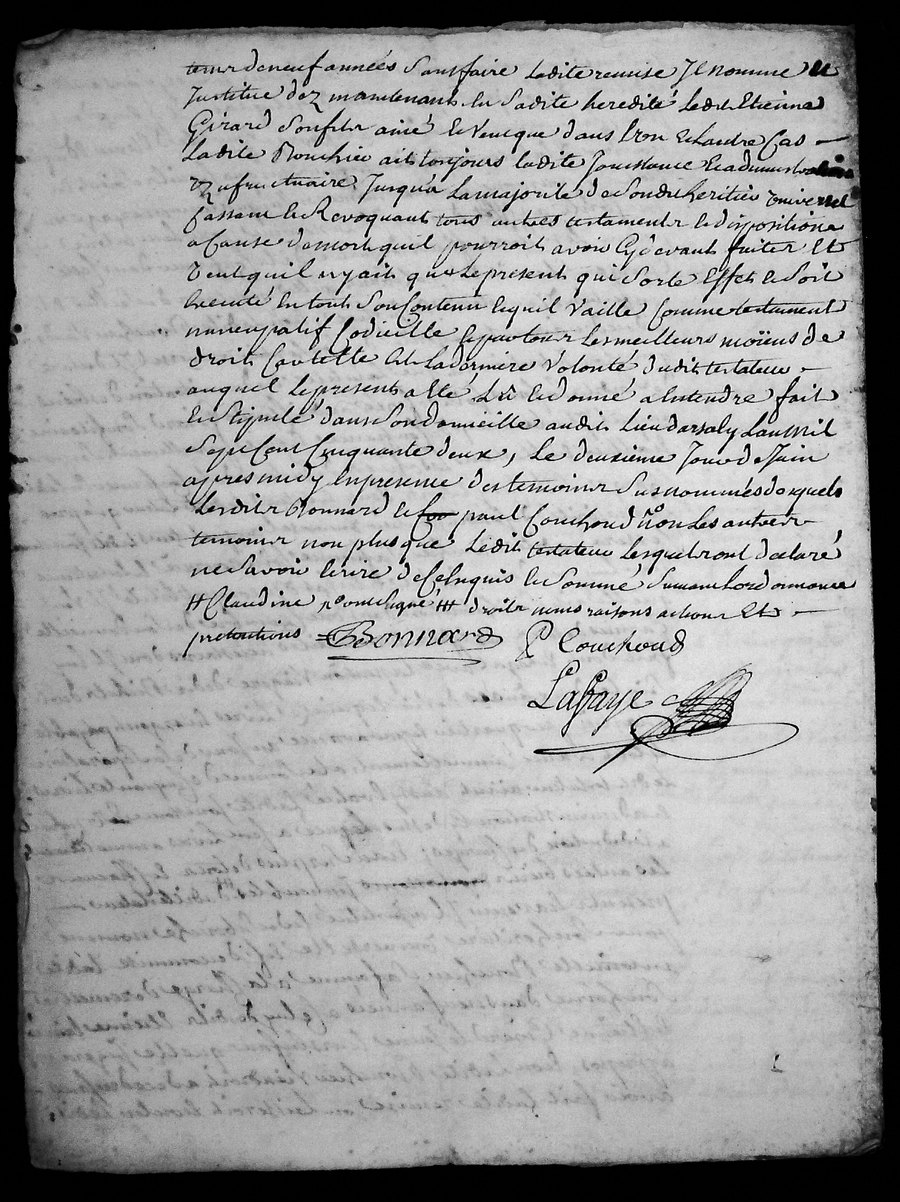 de neuf années sans faire ladite remise Il nomme et
Institue dez maintenant en sadite heredité ledit Etienne
Girard son fils ainé et veut que dans l'un et l'autre cas
ladite Ronchier ait toujours ladite Jouissance et administration
usufructuaire Jusqu'a la majorité de sondit heritier universel
Cassant et Revoquant tous autres testaments et dispositions
a Cause de mort quil pourroit avoir Cy devant faites Et
veut quil ny ait que le present qui sorte Effet et soit
Executé en tout son Contenu et quil vaille Comme testament
nuncupatif Codicille et par tous les meilleurs moïens de
droit Cautelle est la derniere volonté dudit testateur
auquel le present a été lû et donné a Entendre fait
et stipulé dans son domicille audit lieu darsaly Lan Mil
Sept Cent Cinquante deux, le deuxieme Jour de Juin
apres midy En presence des temoins susnommés desquels
lesdits Bonnard et paul Couchoud non les autres
temoins non plus que ledit testateur lesquels ont declaré
ne savoir Ecrire de Ce Enquis et sommé suivant Lordonnance
# Claudine ### droits noms raisons actions Et
pretentions CBonnard P Couchoud
Lafaye